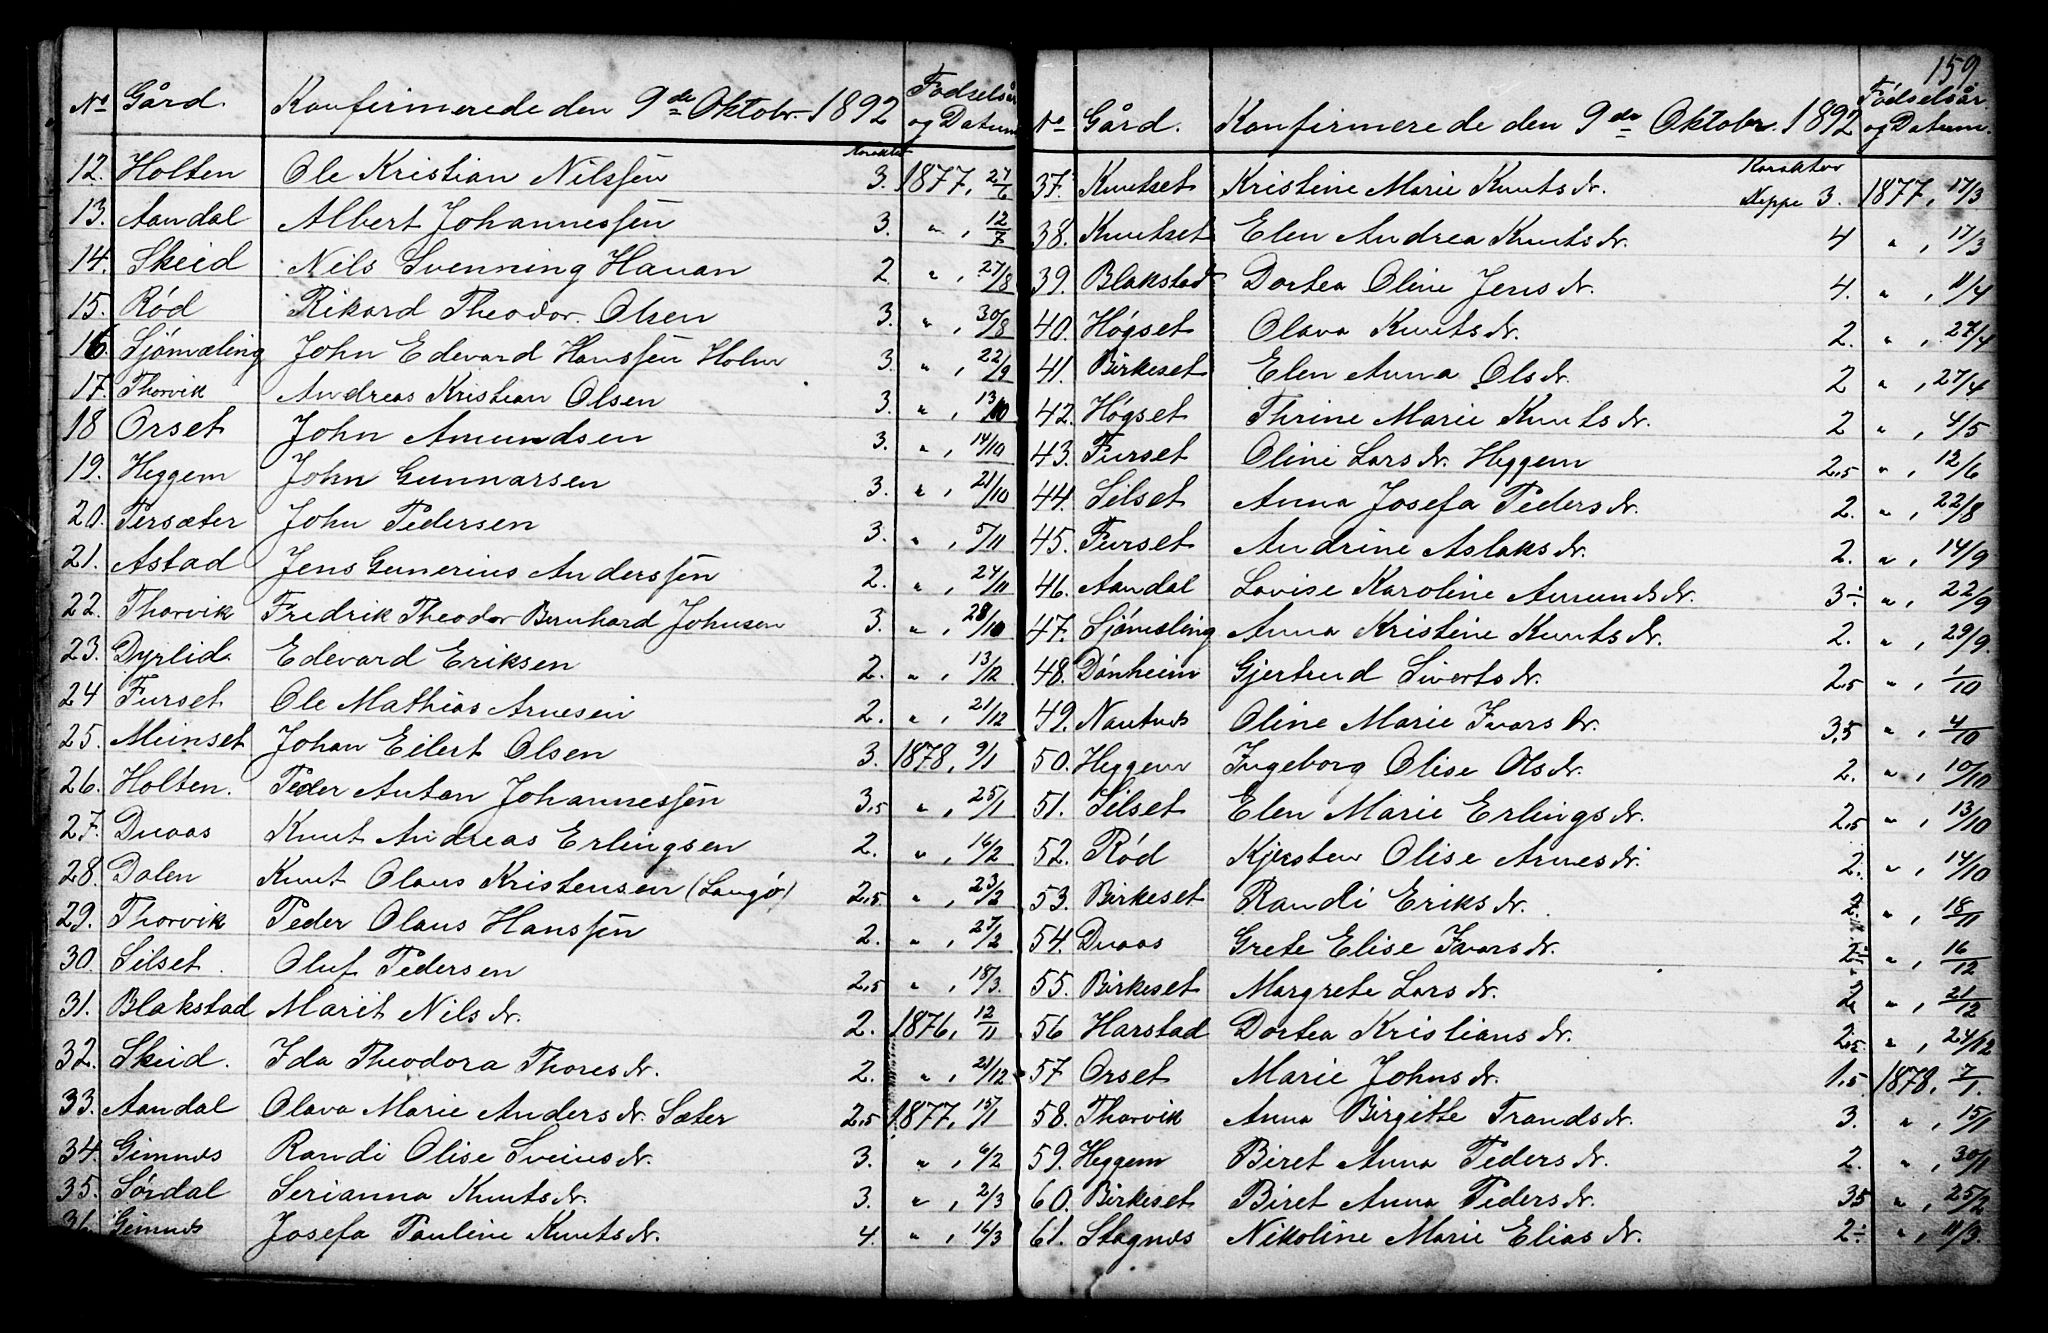 No Gård. Konfirmerede den 9de Oktobr. 1892 Fødselsår og Datum
Karakter
12. Holten Ole Kristian Nilssen 3. 1877, 27/6
13. Aandal Albert Johannessen 3. " , 12/7
14. Skeid Nils Svenning Havan 2 " , 27/8
15. Rød Rikard Theodor. Olsen 3. " , 30/8
16. Sjømæling John Edevard Hanssen Holm 3. " , 22/9
17. Thorvik Andreas Kristian Olsen 3. " , 13/10
18 Orset John Amundsen 3. " , 14/10
19. Heggem John Gunnarsen 3. " , 21/10
20. Persæter John Pedersen 3. " , 5/11
21. Astad Jens Gunerius Anderssen 2. " , 24/11
22. Thorvik Fredrik Theodor Bernhard Johnsen 3. " , 28/10
23. Dyrlid. Edevard Eriksen 2. " , 13/12
24 Furset Ole Mathias Arnesen 2. " , 21/12
25. Meinset Johan Eilert Olsen 3. 1878, 9/1
26. Holten. Peder Anton Johannessen 3,5 " , 25/1
27. Duaas Knut Andreas Erlingsen 2. " , 16/2
28. Dalen Knut Olaus Kristensen (Langø) 2,5 " , 23/2
29. Thorvik Peder Olaus Hanssen 2. " , 27/2
30. Silset. Oluf Pedersen 2,5 " , 18/3.
31. Blakstad Marit Nilsdr. 2. 1876, 12/11
32. Skeid. Ida Theodora Thoresdr. 2. " , 21/12
33. Aandal Olava Marie Andersdr. Sæter 2,5 1877, 15/1
34. Gimnæs Randi Olise Sveinsdr. 3. " , 6/2
35. Sørdal Serianna Knutsdr. 3. " , 2/3
36. Gimnæs Josefa Pauline Knutsdr. 4. " , 16/3
159.
No Gård. Konfirmerede den 9de Oktobr. 1892 Fødselsår. og Datum.
Karakter
37. Knutset Kristine Marie Knutsdr. Neppe 3. 1877, 17/3
38. Knutset Elen Andrea Knutsdr. 4 " , 17/3
39. Blakstad Dortea Oline Jensdr. 4. " , 11/4
40. Høgset Olava Knutsdr. 2. " , 27/4
41. Birkeset Elen Anna Olsdr. 2 " , 27/4
42. Høgset Thrine Marie Knutsdr. 2 " , 4/5
43. Furset Oline Larsdr. Heggem 2,5 " , 12/6
44. Silset Anna Josefa Pedersdr. 2. " , 22/8
45. Furset Andrine Aslaksdr. 2. " , 14/9
46. Aandal Lovise Karoline Amundsdr. 3÷ " , 22/9
47. Sjømæling Anna Kristine Knutsdr. 2. " , 29/9.
48. Dønheim Gjertrud Sivertsdr. 2,5 " , 1/10
49. Nautnes Oline Marie Ivarsdr. 3,5 " , 4/10
50. Heggem Ingeborg Olise Olsdr. 2. " , 10/10
51. Silset Elen Marie Erlingsdr. 2,5 " , 13/10
52. Rød Kjersten Olise Arnesdr. 2. " , 14/10
53. Birkeset Randi Eriksdr. 2. " , 18/11
54. Duaas Grete Elise Ivarsdr. 2÷ " , 16/12
55. Birkeset Margrete Larsdr. 2 " , 21/12
56 Harstad Dortea Kristiansdr. 2,5. " , 24/12
57 Orset Marie Johnsdr. 1,5 1878, 7/1.
58. Thorvik Anna Birgitte Trandsdr. 3. " , 15/1
59. Heggem Beret Anna Pedersdr. 2. " , 30/1
60. Birkeset Beret Anna Pedersdr. 35 " , 25/2
61. Stagnæs Nikoline Marie Eliasdr. 2÷ " , 11/3.